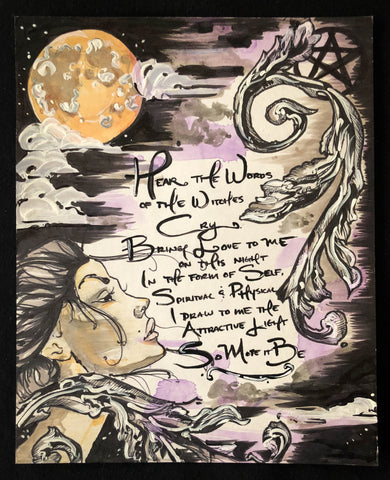 Hear the Words
of the Witches
Cry
Bring Love to me
on this night
In the form of Self,
Spiritual & Physical
I draw to me the
Attractive Light
So Mote it Be